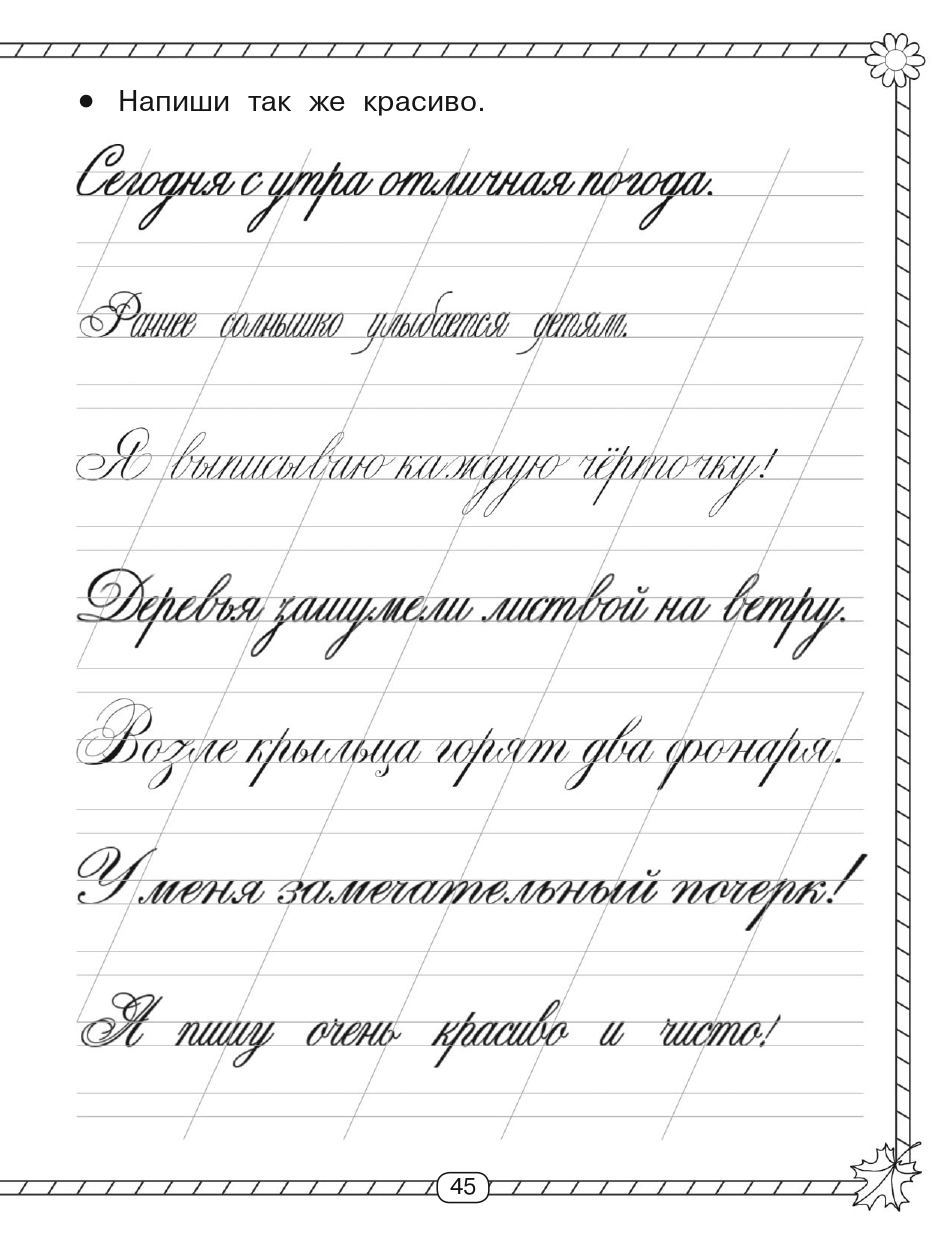 ● Напиши так же красиво.
Сегодня с утра отличная погода.
Раннее солнышко улыбается детям.
Я выписываю каждую чёрточку!
Деревья зашумели листвой на ветру.
Возле крыльца горят два фонаря.
У меня замечательный почерк!
Я пишу очень красиво и чисто!
45